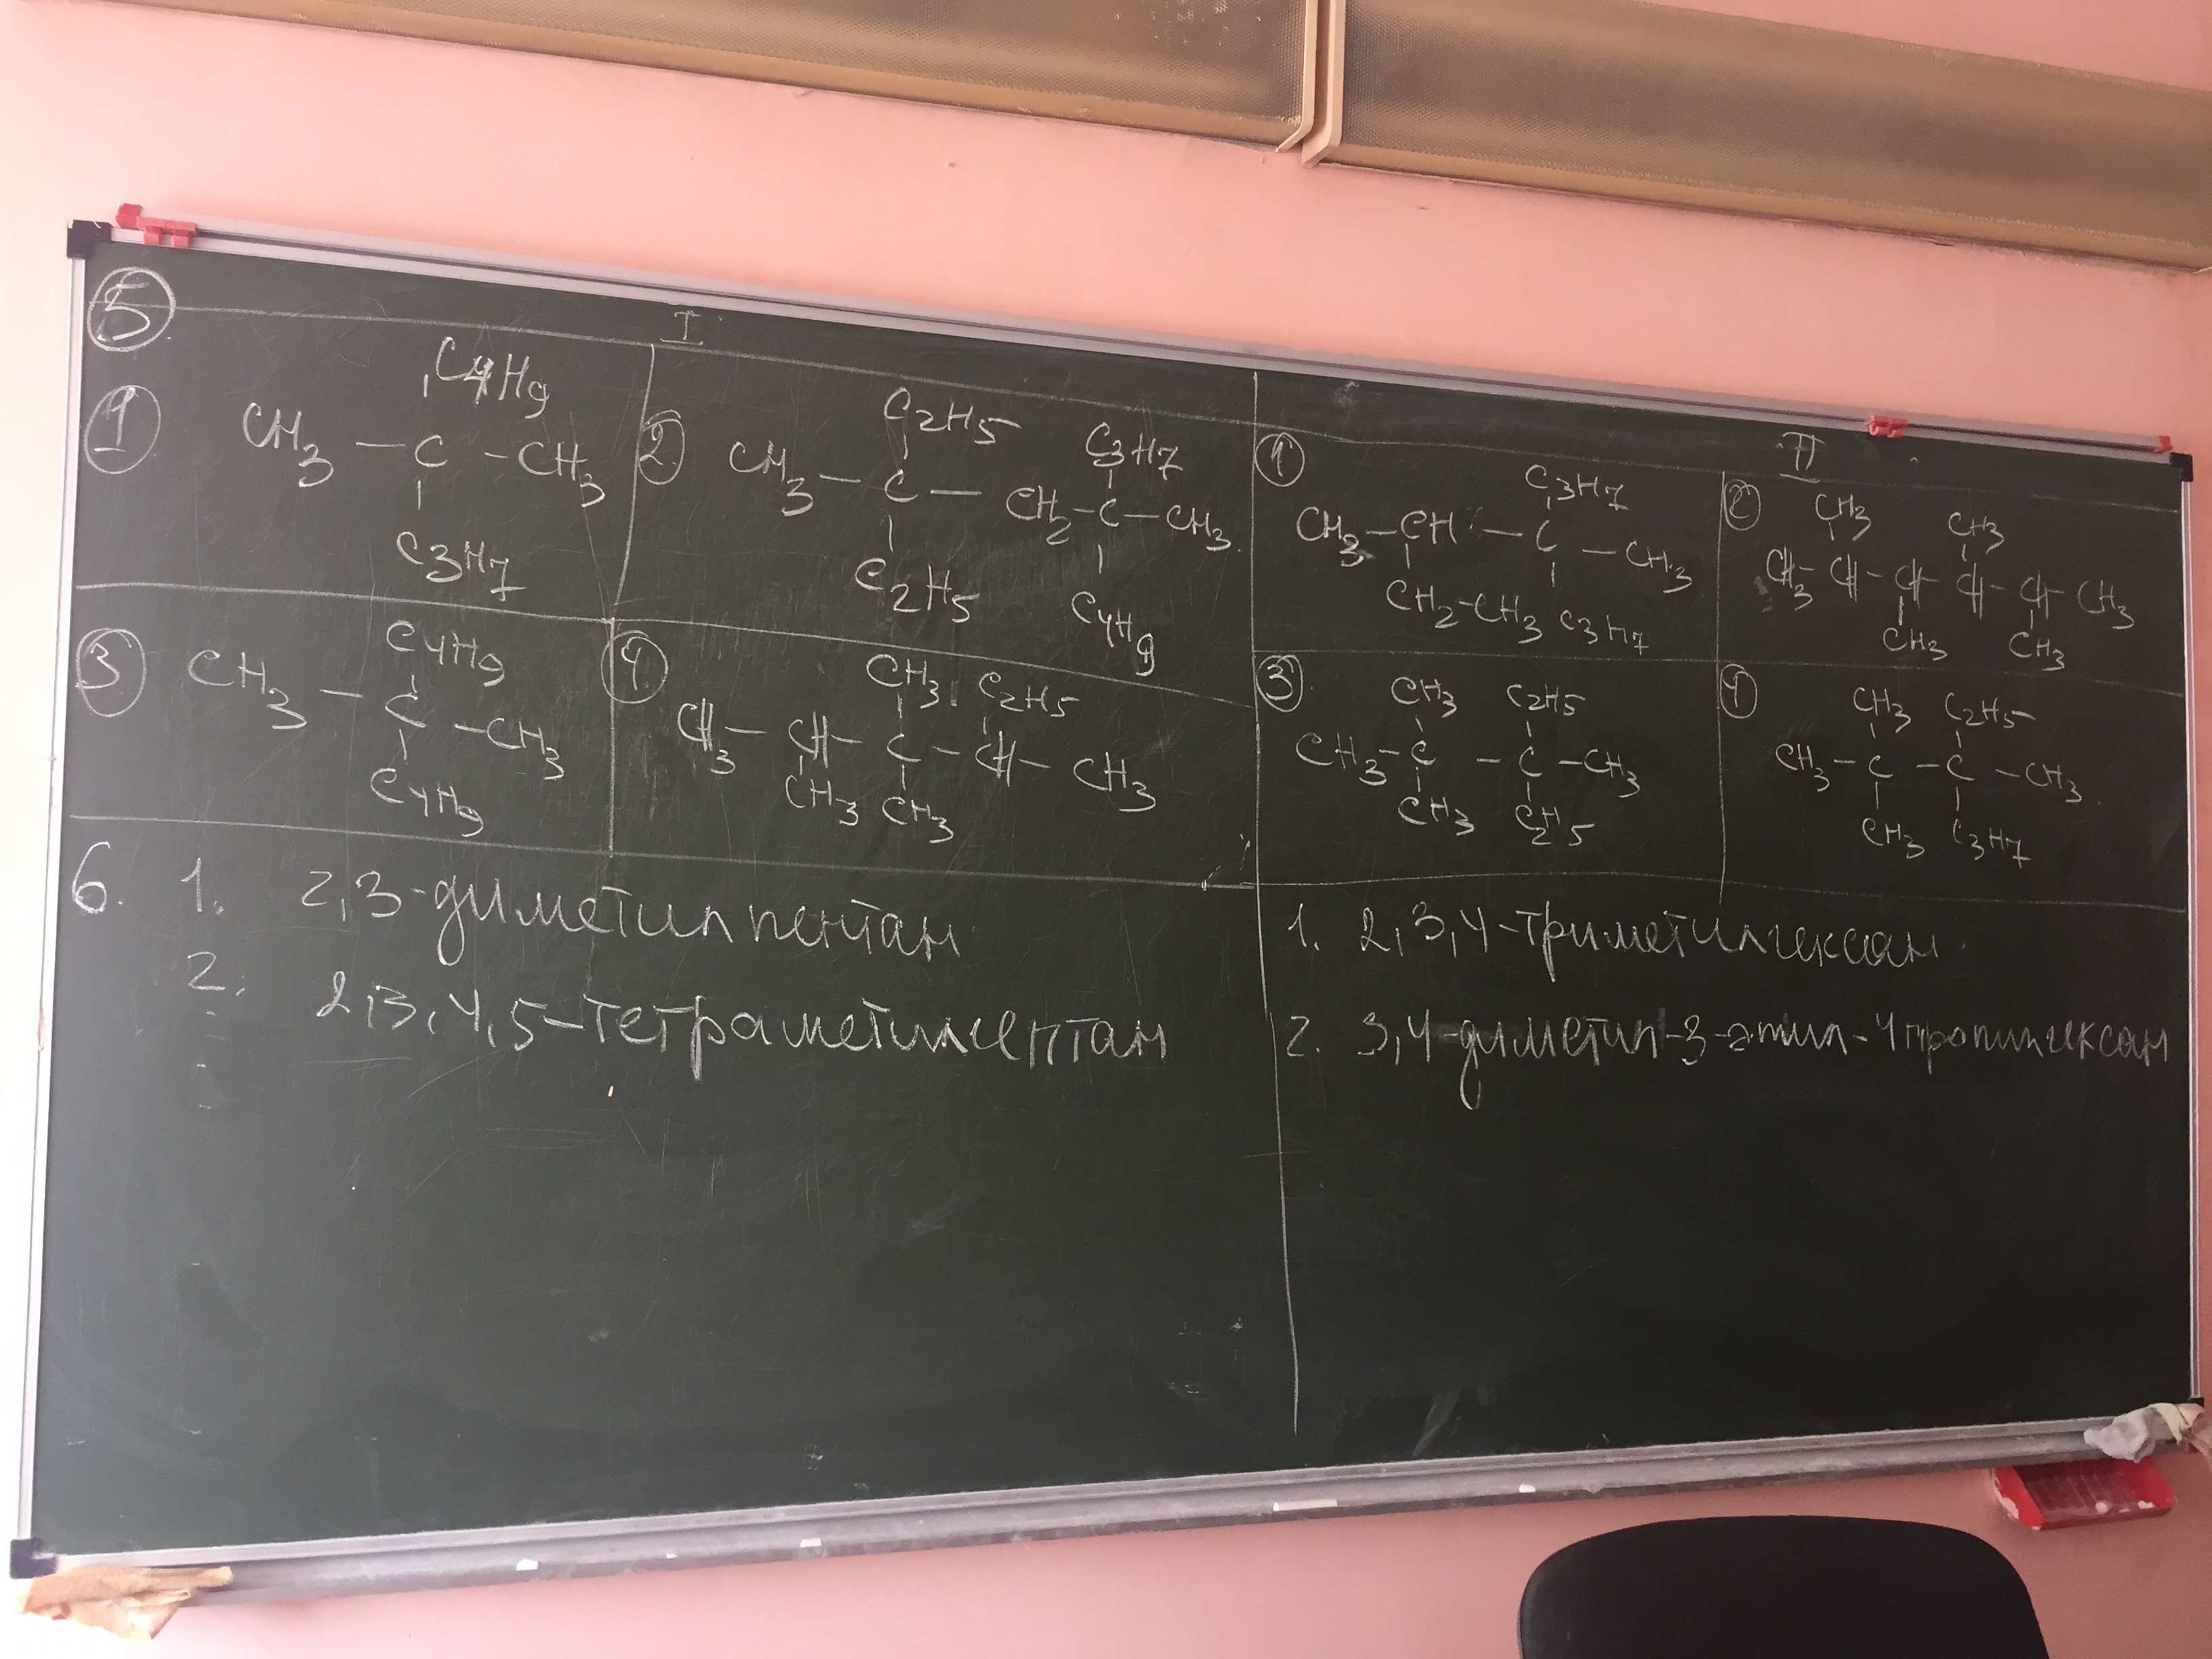 5
I
II
1
C4H9
CH3 – C – CH3
C3H7
2
C2H5 C3H7
CH3 – C – CH2 – C – CH3
C2H5 C4H9
1
C3H7
CH3 – CH – C – CH3
CH2 – CH3 C3H7
2
CH3 CH3
CH3 – CH – CH – CH – CH – CH3
CH3 CH3
3
C4H9
CH3 – C – CH3
C4H9
4
CH3 C2H5
CH3 – CH – C – CH – CH3
CH3 CH3
3
CH3 C2H5
CH3 – C – C – CH3
CH3 C2H5
4
CH3 C2H5
CH3 – C – C – CH3
CH3 C3H7
6. 1. 2,3-диметилпентан
2. 2,3,4,5-тетраметилгептан
1. 2,3,4-триметилгексан
2. 3,4-диметил-3-этил-4пропилгексан